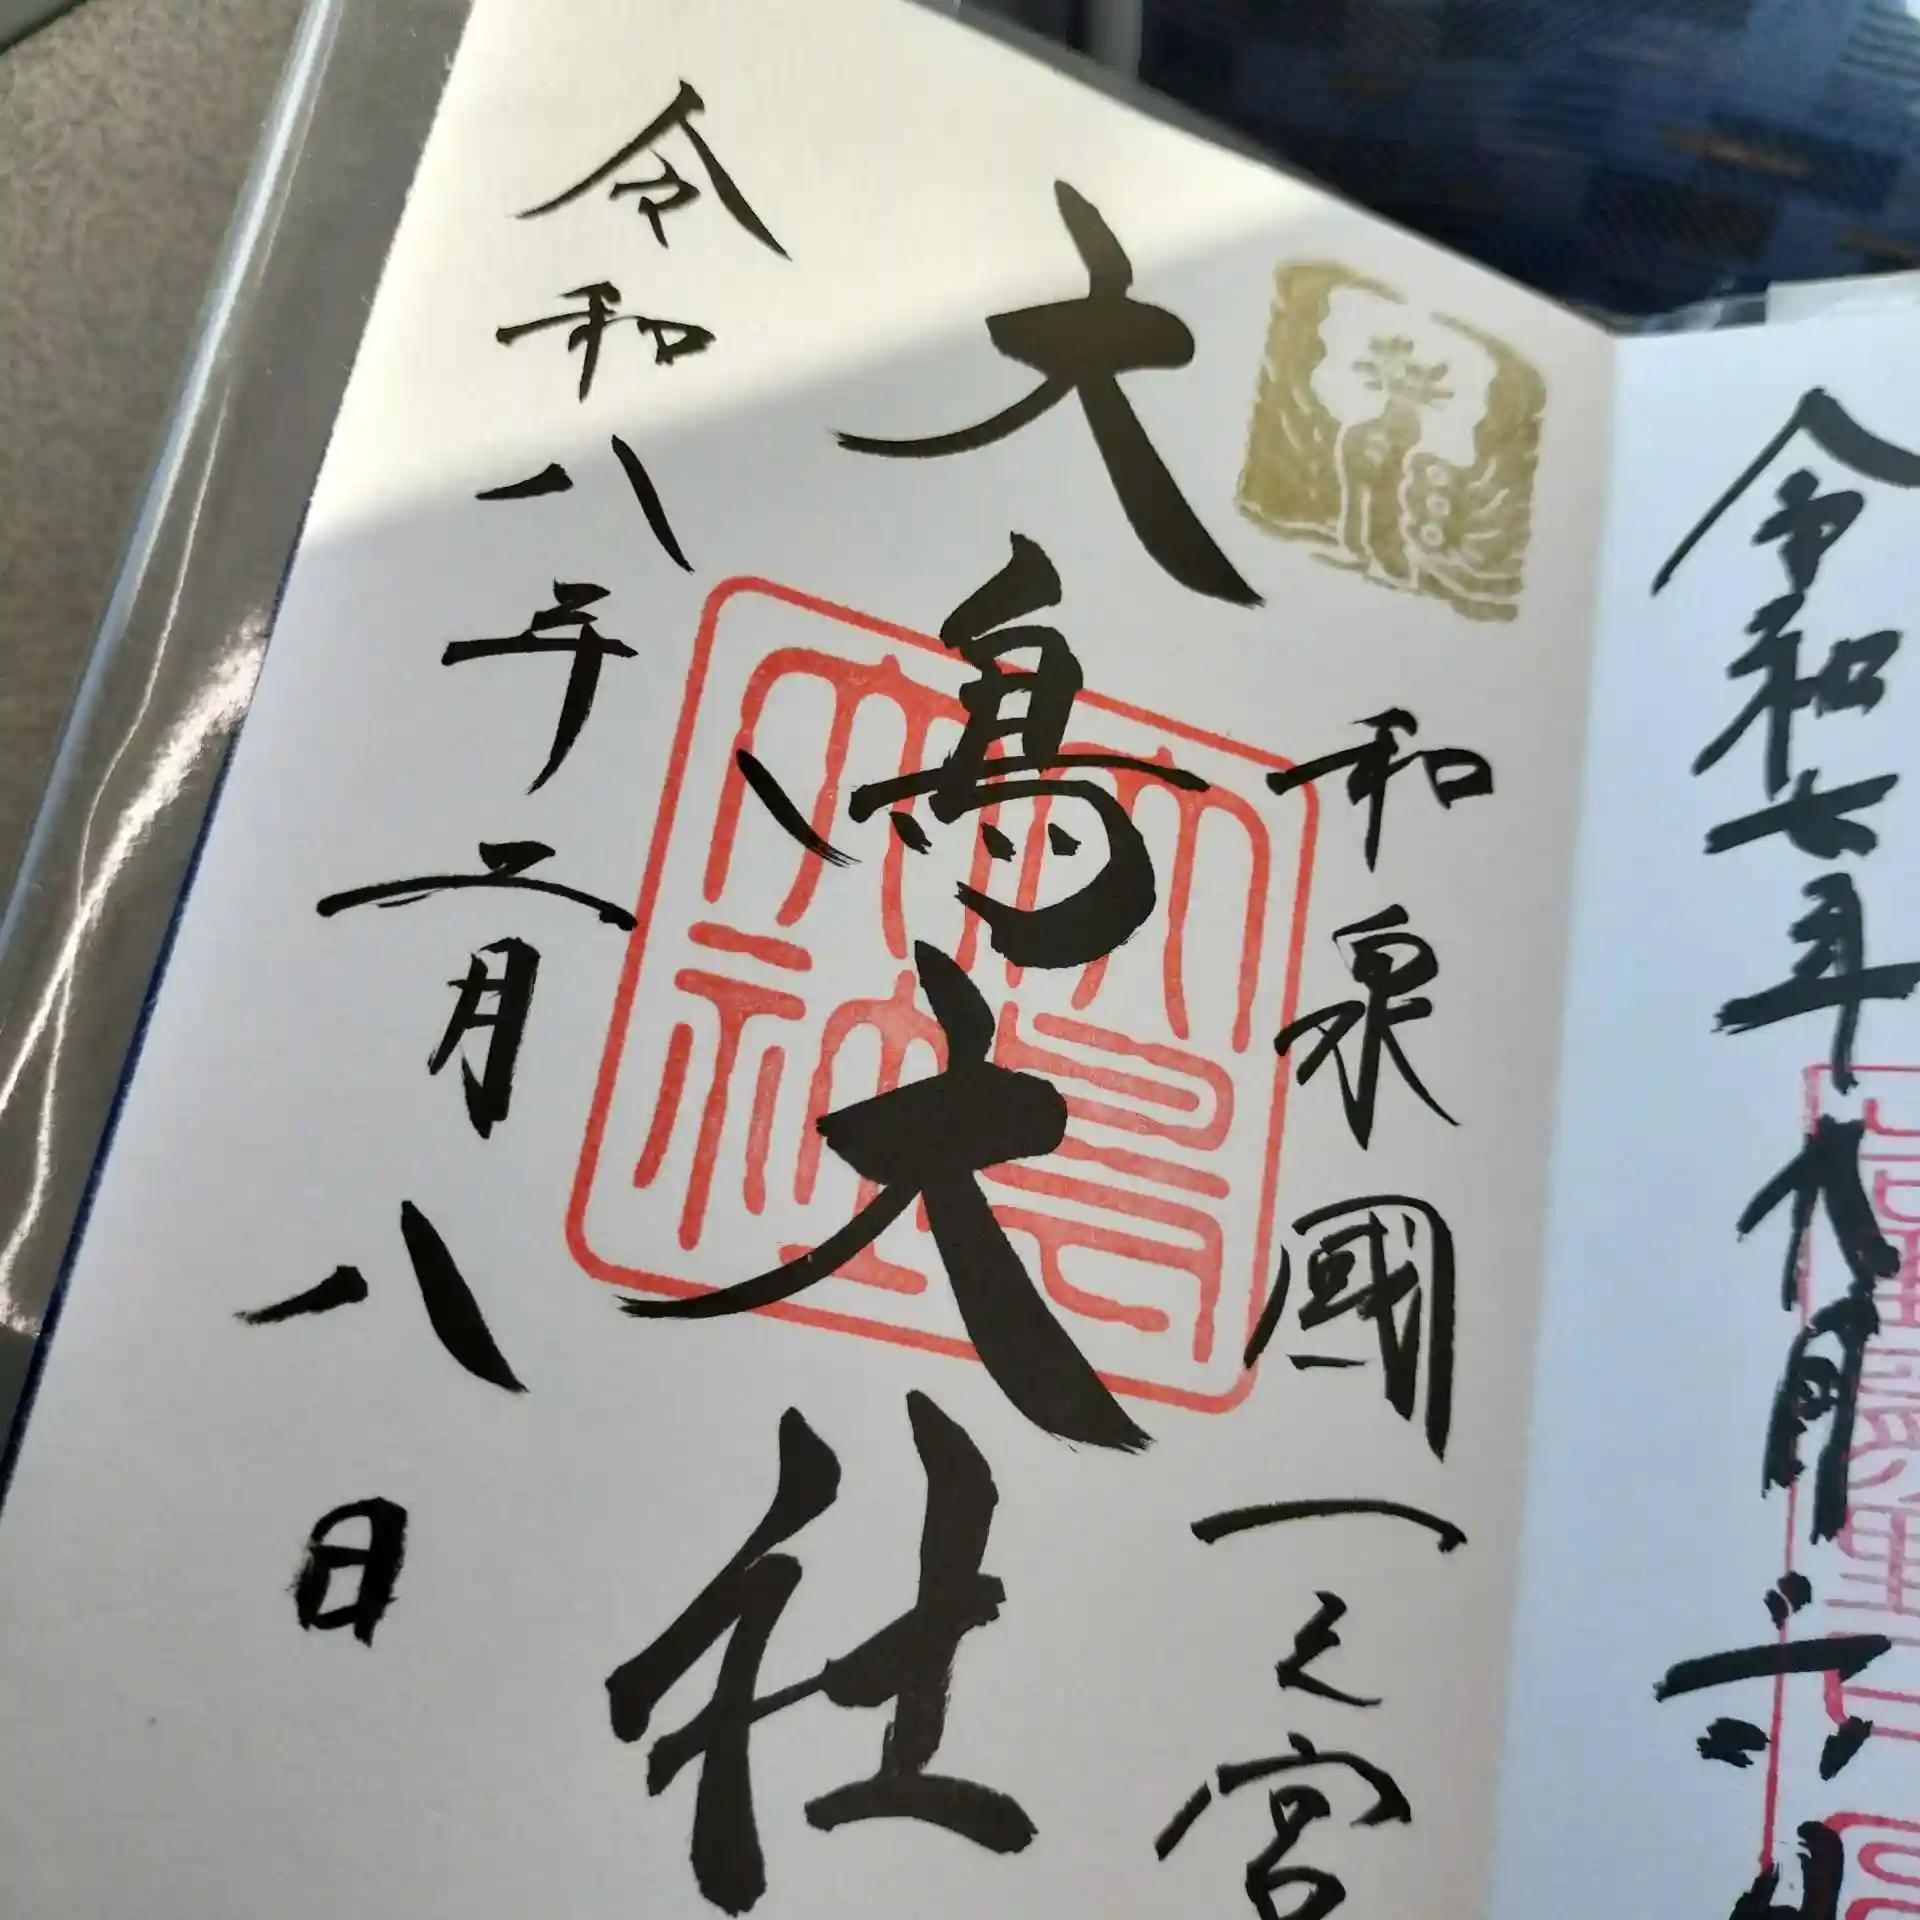 令和七年九月六日
和泉國一之宮
大鳥大社
大鳥
大社
令和八年二月八日